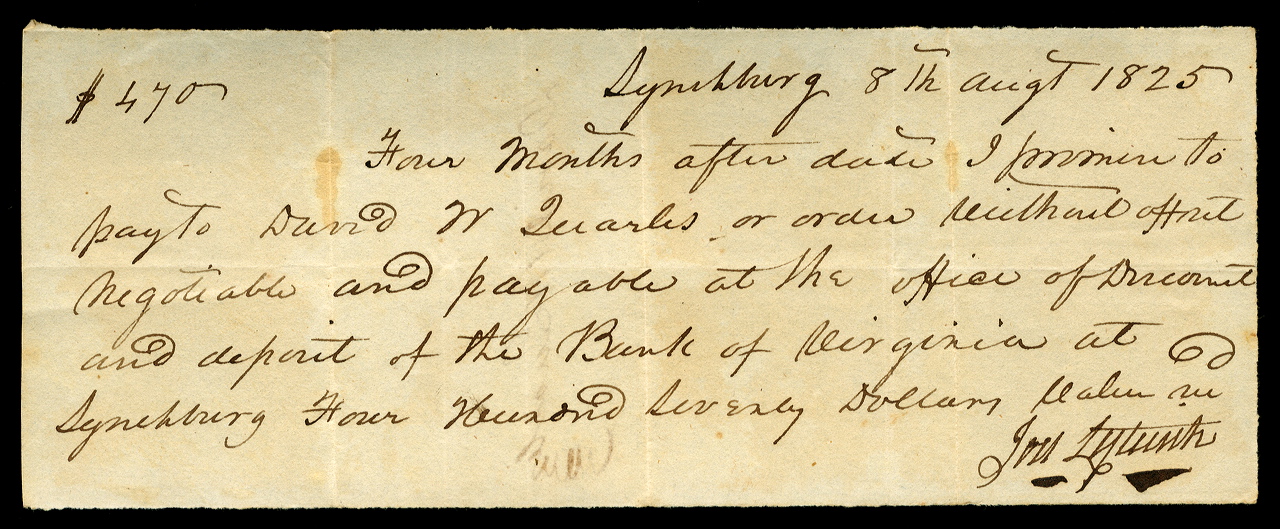 $ 470 Lynchburg 8th augt 1825
Four Months after date I promise to
pay to David W Quarles or order Without offset
Negotiable and payable at the office of Discount
and deposit of the Bank of Virginia at
Lynchburg Four Hundred Seventy Dollars Value recd